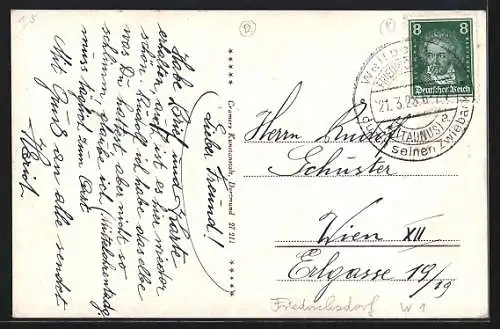 Lieber Freund!
Habe Brief und Karte
erhalten, auch ist es hier wieder
schön. Rudolf ich habe dasselbe
was Du hattest aber nicht so
schlimm, glaube ich (Mittelohrentzdg.)
muss täglich zum Arzt.
Mit Gruß an alle sendet
Heini.
***** Cramers Kunstanstalt, Dortmund 27 211 *****
8 8
Deutsches Reich
21.3.28
(TAUNUS)
seinen Zwieback
Herrn Rudolf
Schuster
Wien XII
Erlgasse 19/19
Friedrichsdorf W 1